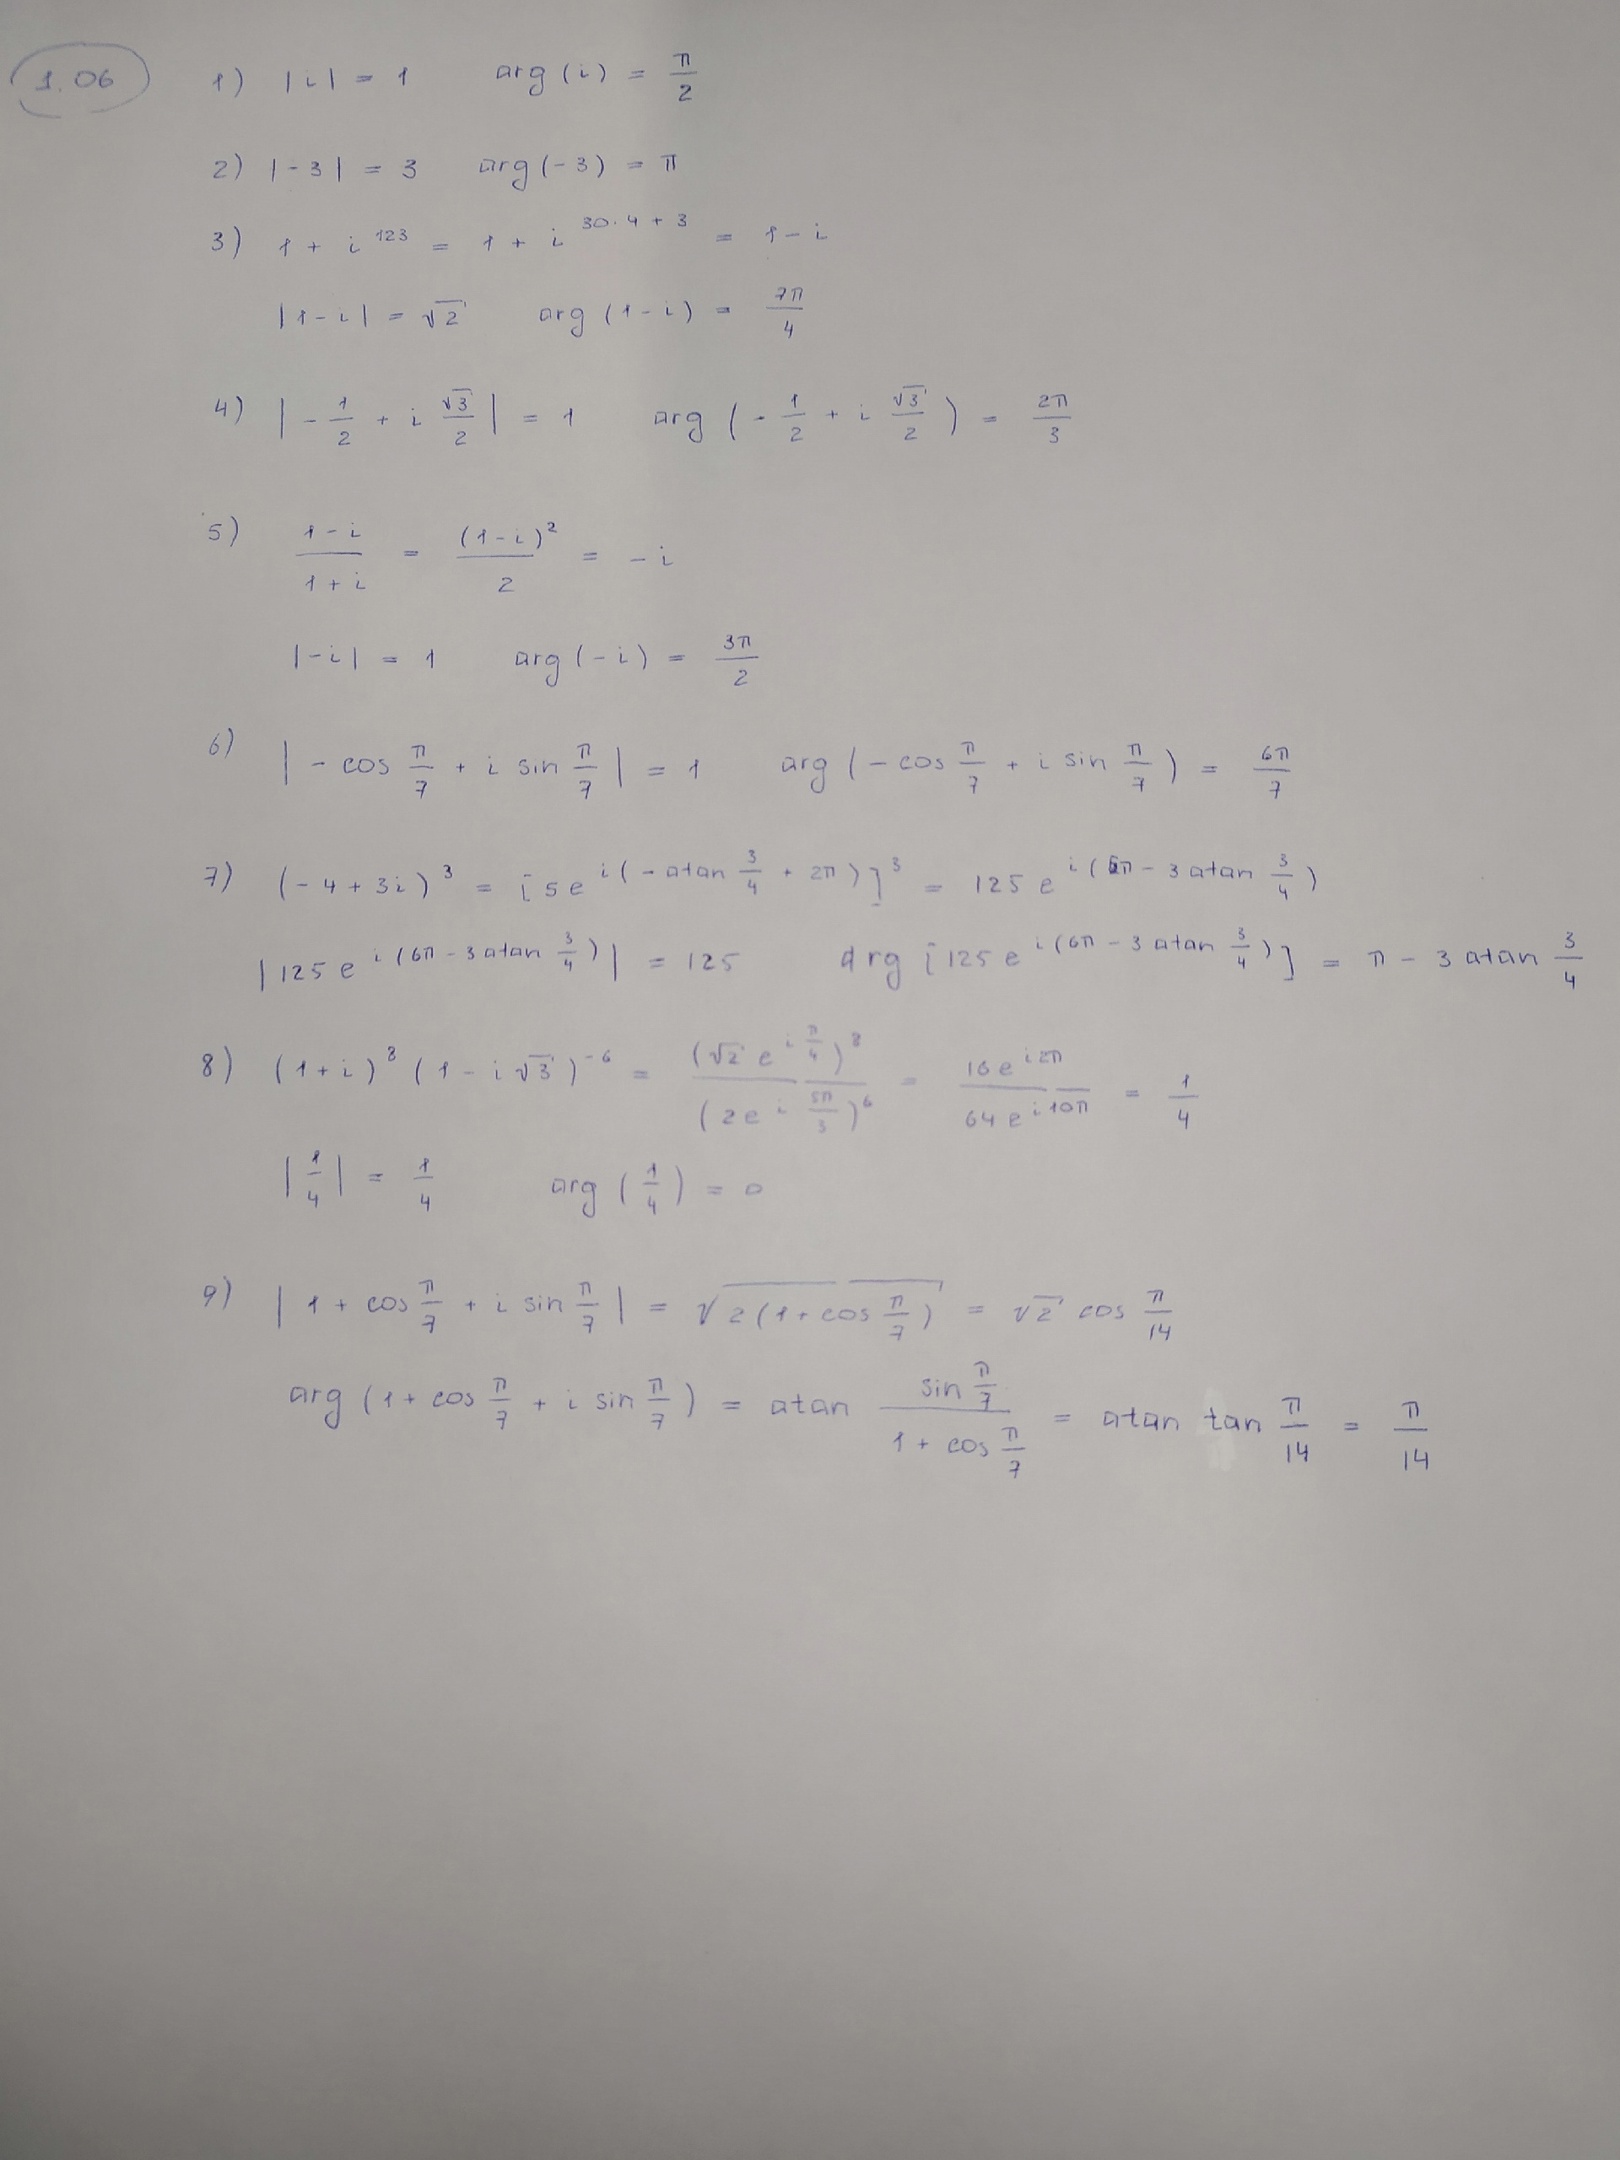 1.06
1) |i| = 1 arg(i) = π/2
2) |-3| = 3 arg(-3) = π
3) 1 + i^123 = 1 + i^(30·4+3) = 1 - i
|1-i| = √2 arg(1-i) = 7π/4
4) |-1/2 + i √3/2| = 1 arg(-1/2 + i √3/2) = 2π/3
5) (1-i)/(1+i) = (1-i)²/2 = -i
|-i| = 1 arg(-i) = 3π/2
6) |-cos π/7 + i sin π/7| = 1 arg(-cos π/7 + i sin π/7) = 6π/7
7) (-4+3i)³ = [5e^(i(-atan 3/4 + 2π))]³ = 125 e^(i(6π - 3 atan 3/4))
|125 e^(i(6π - 3 atan 3/4))| = 125 arg[125 e^(i(6π - 3 atan 3/4))] = π - 3 atan 3/4
8) (1+i)^8 (1-i√3)^-6 = (√2 e^(i π/4))^8/(2e^(i 5π/3))^6 = 16e^(i2π)/64e^(i10π) = 1/4
|1/4| = 1/4 arg(1/4) = 0
9) |1 + cos π/7 + i sin π/7| = √(2(1+cos π/7)) = √2 cos π/14
arg(1+cos π/7 + i sin π/7) = atan (sin π/7)/(1+cos π/7) = atan tan π/14 = π/14